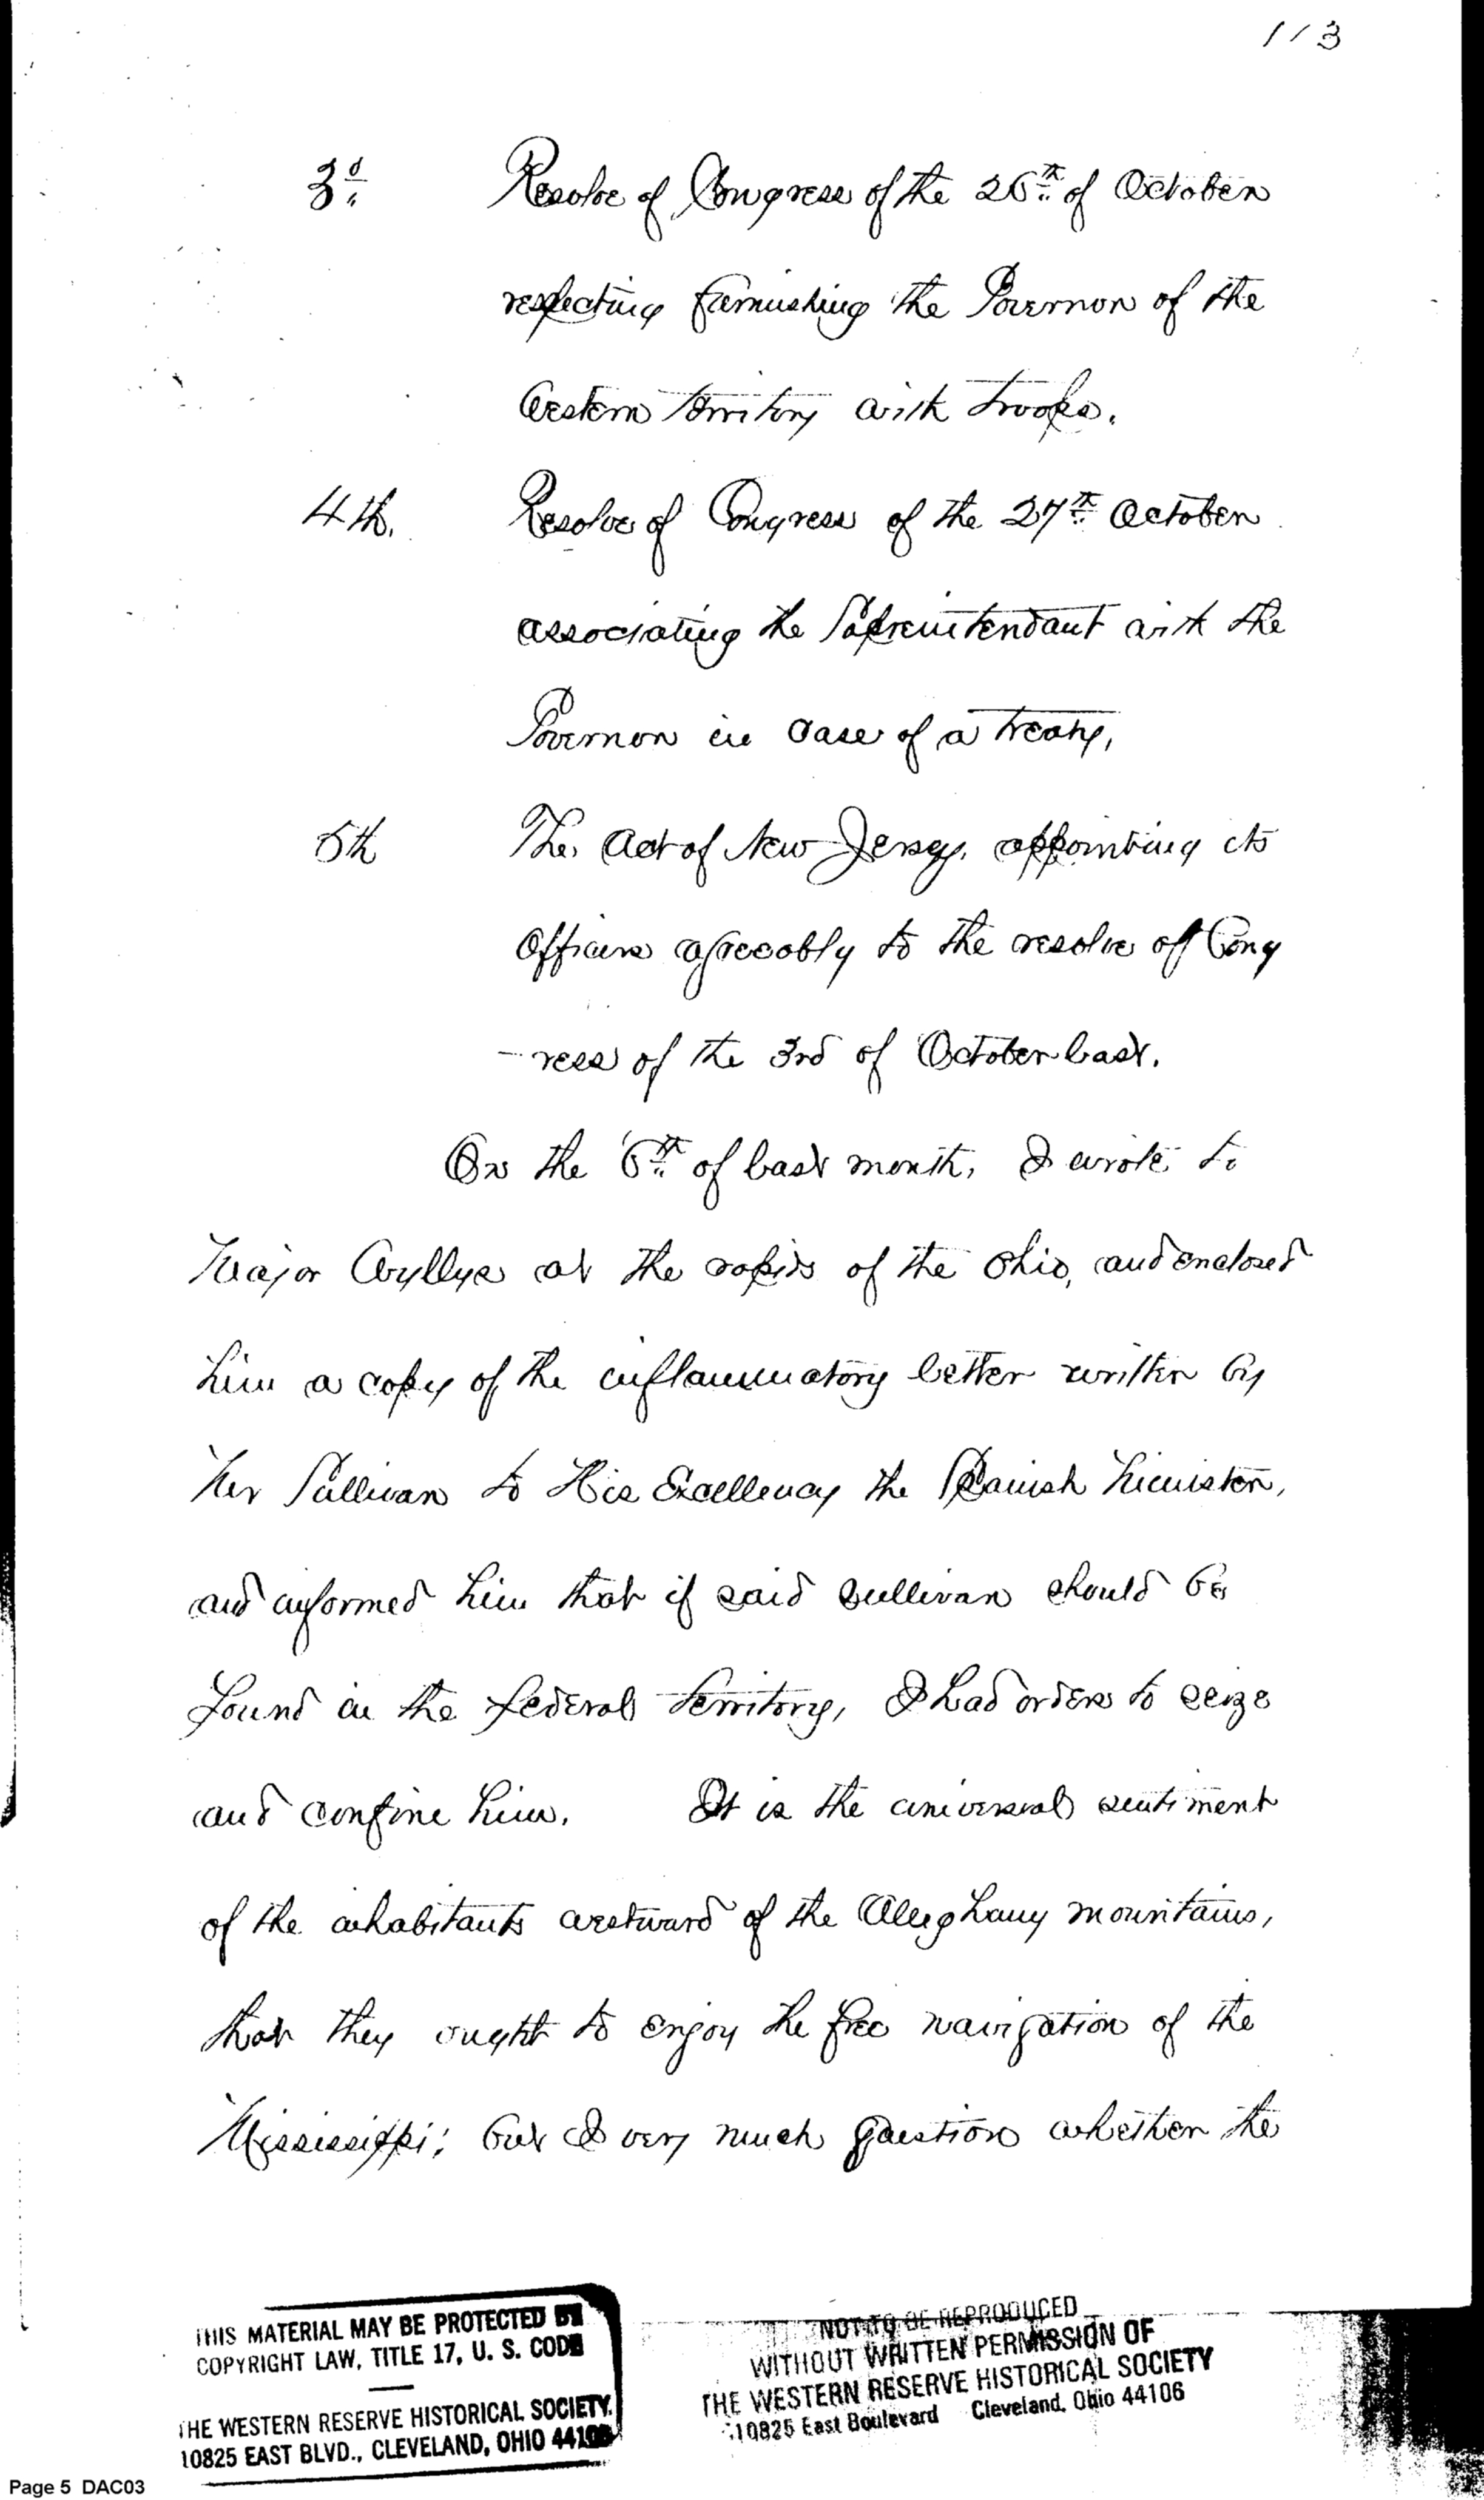 113
3d. Resolve of Congress of the 26th of October
respecting furnishing the Governor of the
Western territory with troops.
4th. Resolve of Congress of the 27th October
associating the Superintendant with the
Governor in case of a treaty,
5th The act of New Jersey, appointing its
Officers agreeably to the resolve off Cong
-ress of the 3rd of October last.
On the 6th of last month, I wrote to
Major Wyllys at the rapids of the Ohio, and enclosed
him a copy of the inflammatory letter written by
Mr Sullivan to His Excellency the Spanish Minister,
and informed him that if said Sullivan should be
found in the federal territory, I had orders to seize
and confine him. It is the universal sentiment
of the inhabitants westward of the Alleghany mountains,
that they ought to enjoy the free navigation of the
Mississippi; but I very much question whether the
THIS MATERIAL MAY BE PROTECTED BY
COPYRIGHT LAW, TITLE 17, U. S. CODE
THE WESTERN RESERVE HISTORICAL SOCIETY
10825 EAST BLVD., CLEVELAND, OHIO 44106
NOT TO BE REPRODUCED
WITHOUT WRITTEN PERMISSION OF
THE WESTERN RESERVE HISTORICAL SOCIETY
10825 East Boulevard Cleveland, Ohio 44106
Page 5 DAC03